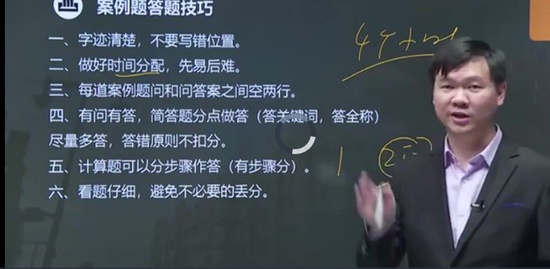 案例题答题技巧
一、字迹清楚，不要写错位置。
二、做好时间分配，先易后难。
三、每道案例题问和问答案之间空两行。
四、有问有答，简答题分点做答（答关键词，答全称）
尽量多答，答错原则不扣分。
五、计算题可以分步骤作答（有步骤分）。
六、看题仔细，避免不必要的丢分。